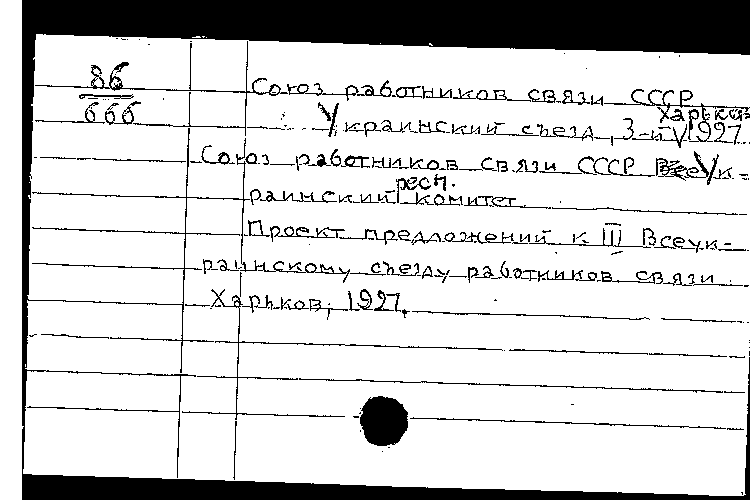 86
666
Союз работников связи СССР
Украинский съезд, 3-й Харьков 1927
Союз работников связи СССР Ук-
раинский респ. комитет
Проект предложений к III Всеук-
раинскому съезду работников связи
Харьков, 1927.